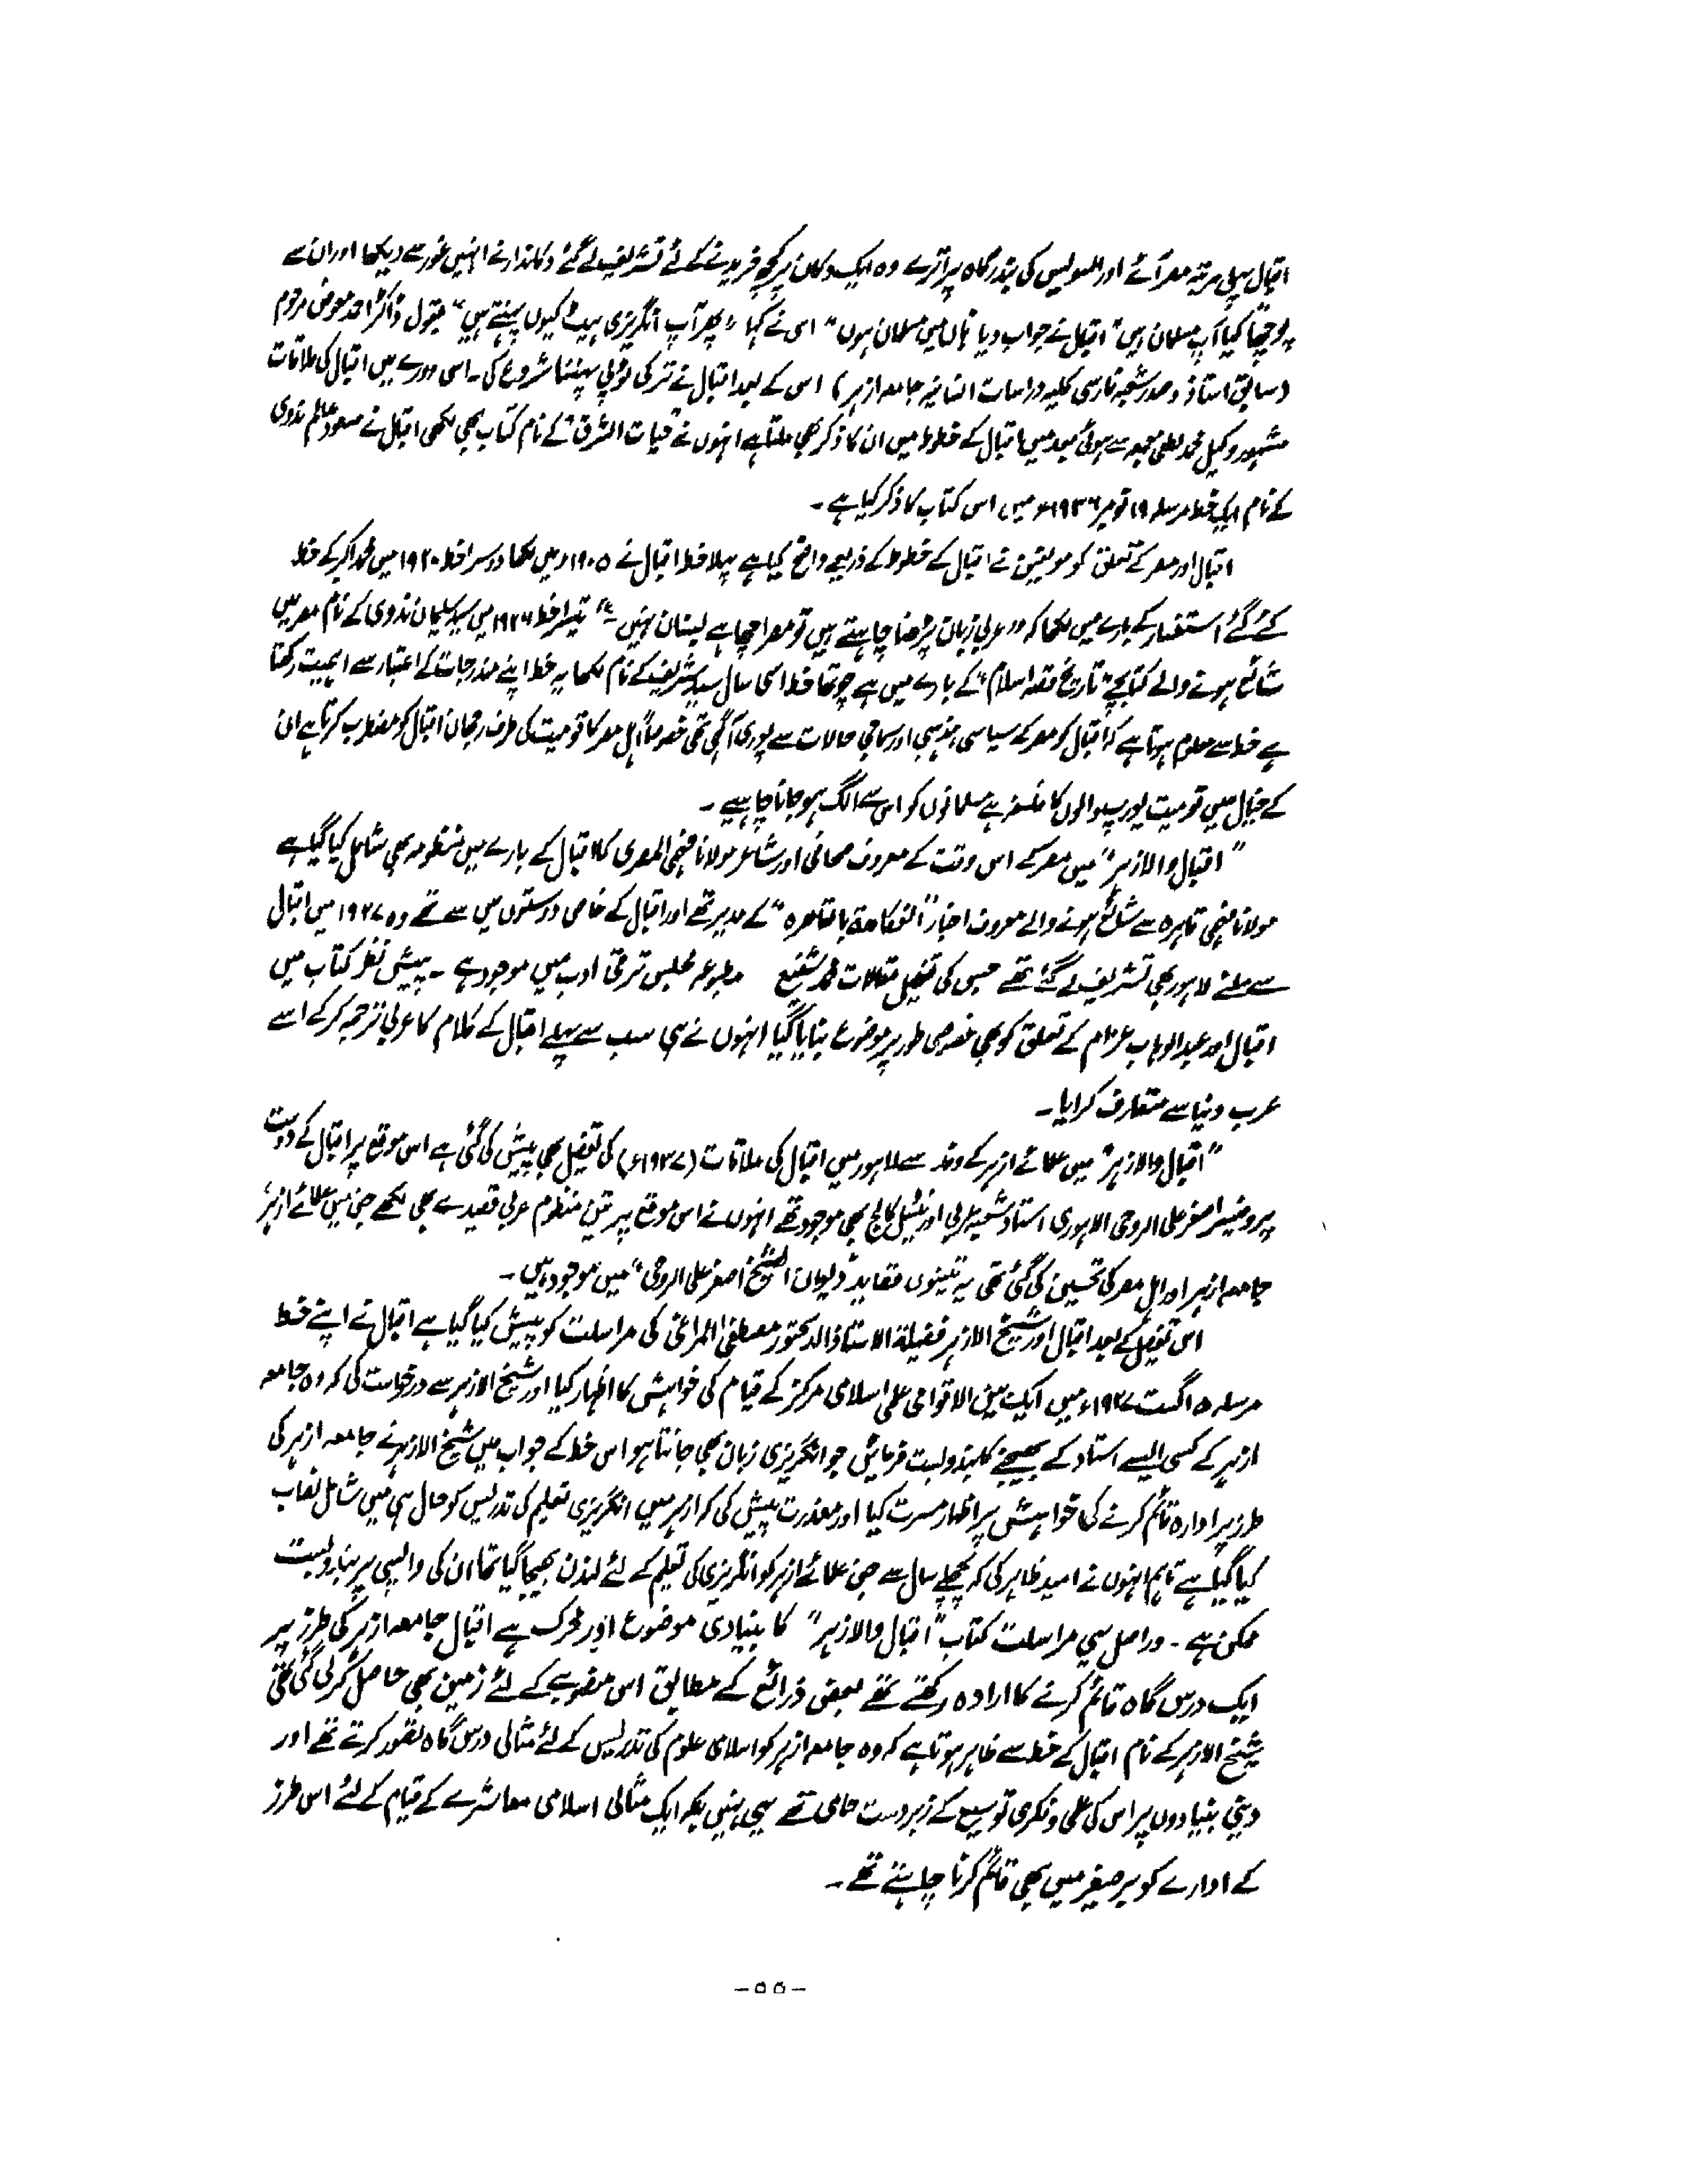 اقبال پہلی مرتبہ مصر آئے اور السویس کی بندرگاہ پر اترے وہ ایک دکان پر کچھ خریدنے کے لئے تشریف لے گئے دکاندار نے انہیں غور سے دیکھا اور ان سے
پوچھا کیا آپ مسلمان ہیں" اقبال نے جواب دیا ہاں میں مسلمان ہوں" اس نے کہا "پھر آپ انگریزی ہیٹ کیوں پہنتے ہیں" بقول ڈاکٹر احمد معوض مرحوم
(سابق استاذ و صدر شعبہ فارسی کلیہ دراسات انسانیہ جامعہ ازہر) اس کے بعد اقبال نے ترکی ٹوپی پہننا شروع کی۔ اسی دورے میں اقبال کی ملاقات
مشہور وکیل محمد لطفی جمعہ سے ہوئی بعد میں اقبال کے خطوط میں ان کا ذکر بھی ملتا ہے انہوں نے حیات الشرق" کے نام کتاب بھی لکھی اقبال نے مسعود عالم ندوی
کے نام ایک خط مرسلہ ۱۹ نومبر ۱۹۳۶ء میں اس کتاب کا ذکر کیا ہے۔
اقبال اور مصر کے تعلق کو مولفین نے اقبال کے خطوط کے ذریعے واضح کیا ہے پہلا خط اقبال نے ۱۹۰۵ء میں لکھا دوسرا خط ۱۹۲۰ میں محمد اکبر کے خط
کئے گئے استفسار کے بارے میں لکھا کہ "عربی زبان پڑھنا چاہتے ہیں تو مصر اچھا ہے لبنان نہیں" تیسرا خط ۱۹۲۶ میں سید سلیمان ندوی کے نام مصر میں
شائع ہونے والے کتابچے "تاریخ فقہ اسلام" کے بارے میں ہے چوتھا خط اسی سال سید شریف کے نام لکھا یہ خط اپنے مندرجات کے اعتبار سے اہمیت رکھتا
ہے خط سے معلوم ہوتا ہے کہ اقبال کو مصر کے سیاسی، مذہبی اور سماجی حالات سے پوری آگہی تھی خصوصاً اہل مصر کا قومیت کی طرف رجحان اقبال کو مضطرب کرتا ہے ان
کے خیال میں قومیت یورپ والوں کا فلسفہ ہے مسلمانوں کو اس سے الگ ہو جانا چاہیے۔
"اقبال والازہر" میں مصر کے اس وقت کے معروف صحافی اور شاعر مولانا فتحی المصری کا اقبال کے بارے میں منظومہ بھی شامل کیا گیا ہے
مولانا فتحی قاہرہ سے شائع ہونے والے معروف اخبار "الفکاھۃ بالقاھرہ" کے مدیر تھے اور اقبال کے خاص دوستوں میں سے تھے وہ ۱۹۲۷ میں اقبال
سے ملنے لاہور بھی تشریف لے گئے تھے جس کی تفصیل مقالات محمد شفیع مطبوعہ مجلس ترقی ادب میں موجود ہے۔ پیش نظر کتاب میں
اقبال اور عبدالوہاب عزام کے تعلق کو بھی خصوصی طور پر موضوع بنایا گیا انہوں نے ہی سب سے پہلے اقبال کے کلام کا عربی ترجمہ کر کے اسے
عرب دنیا سے متعارف کرایا۔
"اقبال والازہر" میں علمائے ازہر کے وفد سے لاہور میں اقبال کی ملاقات (۱۹۳۷ء) کی تفصیل بھی پیش کی گئی ہے اس موقع پر اقبال کے دوست
پروفیسر اصغر علی الروحی لاہوری استاد شعبہ عربی اورنٹیل کالج بھی موجود تھے انہوں نے اس موقع پر تین منظوم عربی قصیدے بھی لکھے جن میں علمائے ازہر،
جامعہ ازہر اور اہل مصر کی تحسین کی گئی تھی یہ تینوں قصاید "دیوان الشیخ اصغر علی الروحی" میں موجود ہیں۔
اس تفصیل کے بعد اقبال اور شیخ الازہر فضیلۃ الاستاذ الدکتور مصطفی المراغی کی مراسلت کو پیش کیا گیا ہے اقبال نے اپنے خط
مرسلہ ۵ اگست ۱۹۳۷ء میں ایک بین الاقوامی علمی اسلامی مرکز کے قیام کی خواہش کا اظہار کیا اور شیخ الازہر سے درخواست کی کہ وہ جامعہ
ازہر کے کسی ایسے استاد کے بھیجنے کا بندوبست فرمائیں جو انگریزی زبان بھی جانتا ہو اس خط کے جواب میں شیخ الازہر نے جامعہ ازہر کی
طرز پر ادارہ قائم کرنے کی خواہش پر اظہار مسرت کیا اور معذرت پیش کی کہ ازہر میں انگریزی تعلیم کی تدریس کو حال ہی میں شامل نصاب
کیا گیا ہے تاہم انہوں نے امید ظاہر کی کہ پچھلے سال سے جن علمائے ازہر کو انگریزی کی تعلیم کے لئے لندن بھیجا گیا تھا ان کی واپسی پر بندوبست
ممکن ہے۔ دراصل یہی مراسلت کتاب "اقبال والازہر" کا بنیادی موضوع اور محرک ہے اقبال جامعہ ازہر کی طرز پر
ایک درس گاہ قائم کرنے کا ارادہ رکھتے تھے بعض ذرائع کے مطابق اس منصوبے کے لئے زمین بھی حاصل کر لی گئی تھی
شیخ الازہر کے نام اقبال کے خط سے ظاہر ہوتا ہے کہ وہ جامعہ ازہر کو اسلامی علوم کی تدریس کے لئے مثالی درس گاہ تصور کرتے تھے اور
دینی بنیادوں پر اس کی علمی و فکری توسیع کے زبردست حامی تھے یہی نہیں بلکہ ایک مثالی اسلامی معاشرے کے قیام کے لئے اس طرز
کے ادارے کو برصغیر میں بھی قائم کرنا چاہتے تھے۔
-۵۵-